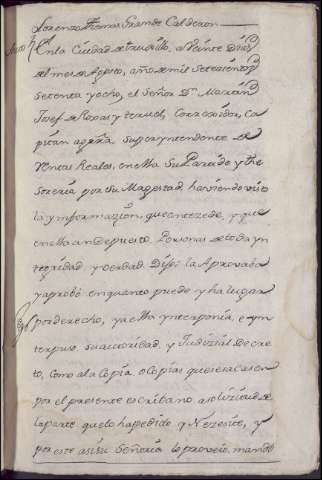 Lorenzo Thomas Grande Calderon
Auto En la Ciudad de Truxillo, a Veinte Dias
del mes de Agosto, año de mil Setezientos
Setenta y ocho, el Señor Dn. Martin
Josef de Roxas y Corregidor, Ca
pitan a guerra, Superyntendente de
Rentas Reales, en ella Su Partido y the
soreria por su Magestad, haviendo visto
la ynformazion, que antezede, y que
en ella an depuesto Personas de toda yn
tegridad, y verdad. Dijo: la Aprovaba
y aprobó en quanto puede y ha lugar
por derecho, y a ella ynterponia, e yn
terpuso su autoridad, y Judizial Decre
to, como a la Copia o Copias que se sacasen
por el presente escribano a solizitud de
la parte que lo ha pedido y Nezesite, y
por este asi su Señoria lo proveio, mandó